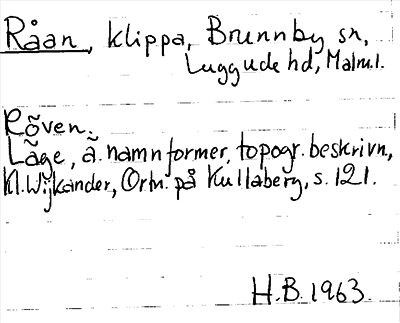 Råan, klippa, Brunnby sn,
Luggude hd, Malm.l.
Rõven.
Läge, ä. namnformer, topogr. beskrivn.,
Kl. Wijkander, Ortn. på Kullaberg, s. 121.
H.B. 1963.